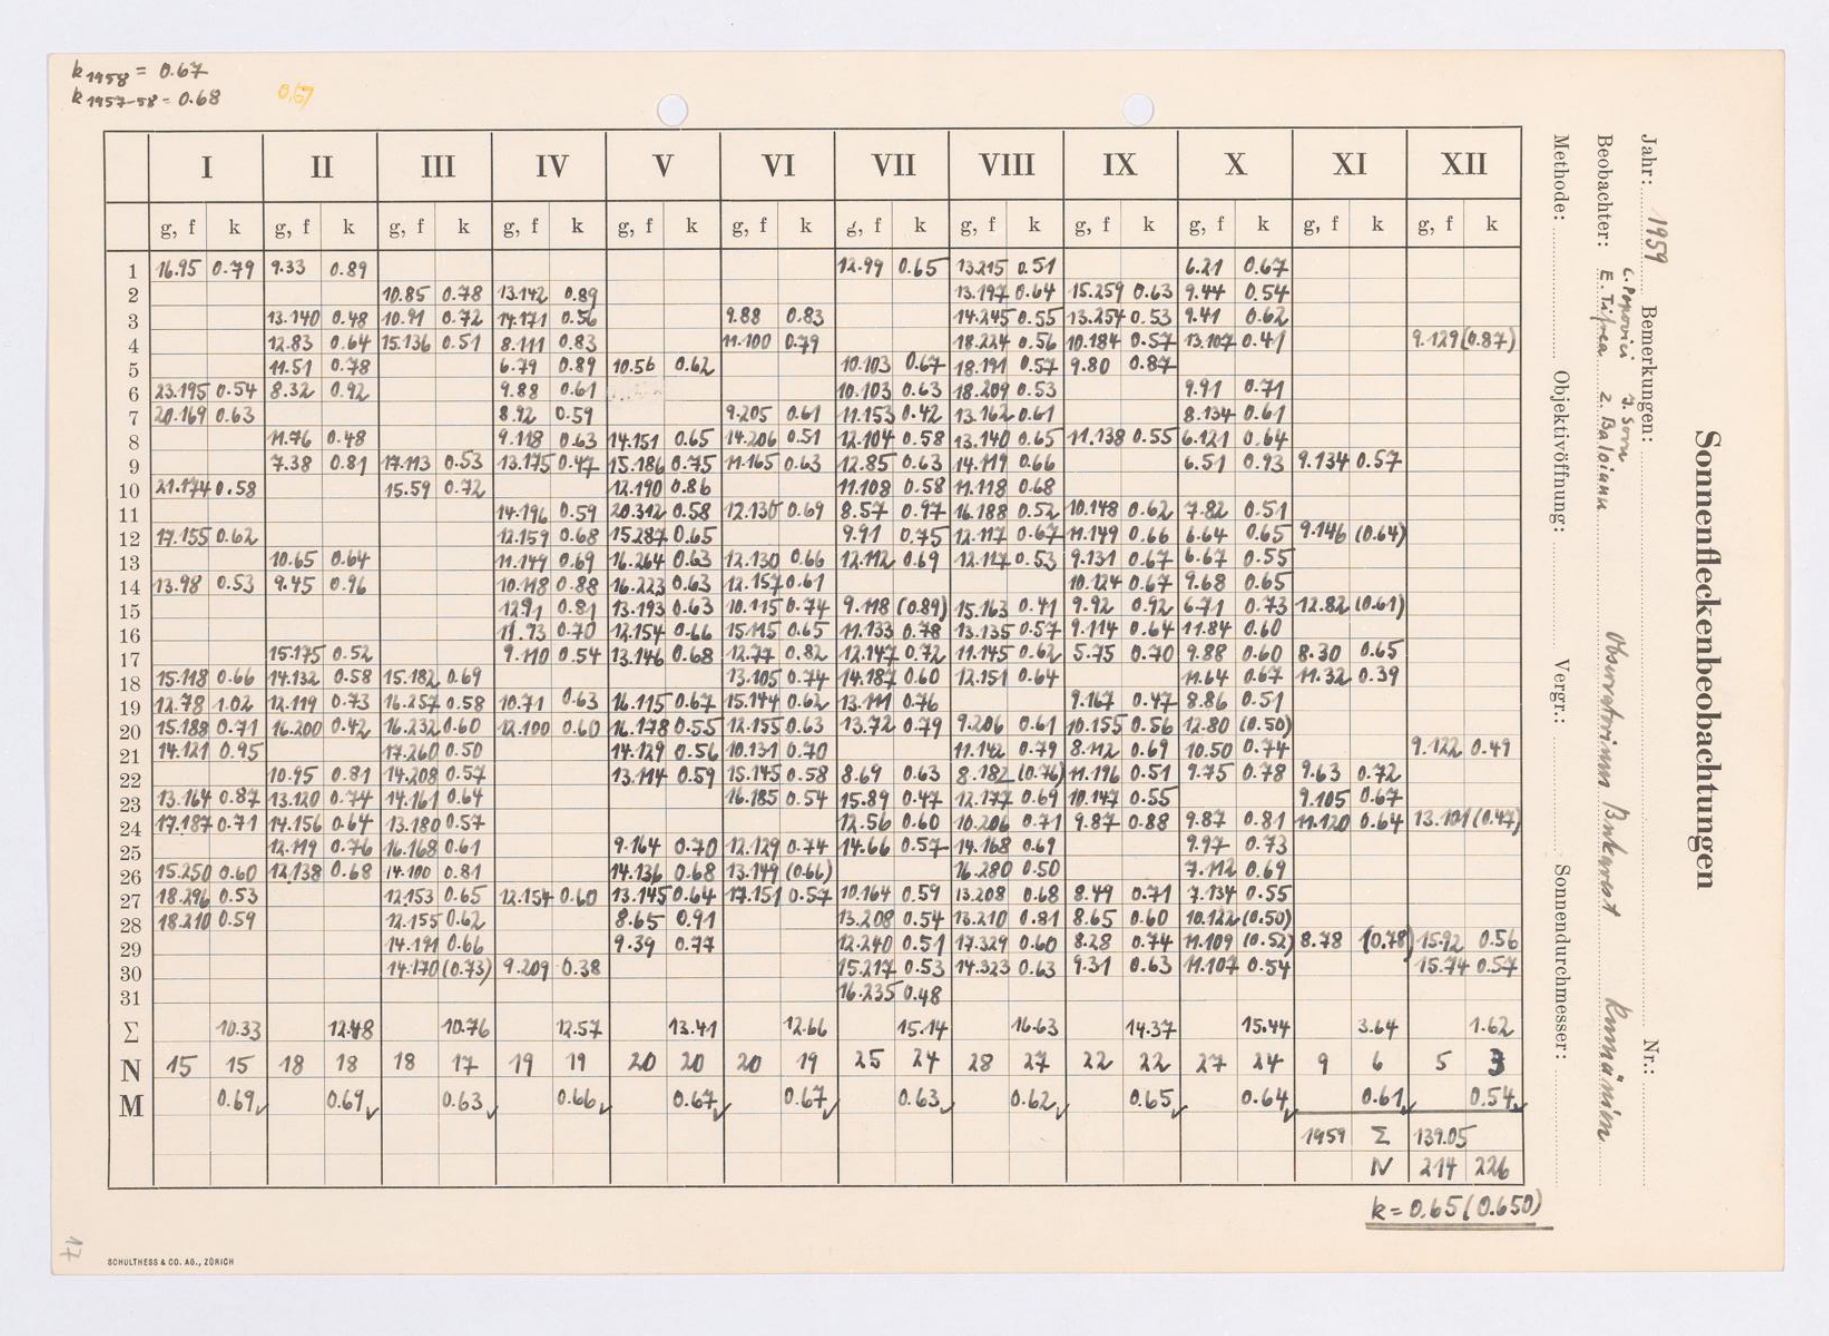 k 1958 = 0.67
k 1957-58 = 0.68 0.67
I II III IV V VI VII VIII IX X XI XII
g, f k g, f k g, f k g, f k g, f k g, f k g, f k g, f k g, f k g, f k g, f k g, f k
1 16.95 0.79 9.33 0.89 12.99 0.65 13.215 0.51 6.21 0.67
2 10.85 0.78 13.142 0.89 13.197 0.64 15.259 0.63 9.44 0.54
3 13.140 0.48 10.91 0.72 14.171 0.56 9.88 0.83 14.245 0.55 13.254 0.53 9.41 0.62
4 12.83 0.64 15.136 0.51 8.111 0.83 11.100 0.79 18.224 0.56 10.184 0.57 13.107 0.41 9.129 (0.87)
5 11.51 0.78 6.79 0.89 10.56 0.62 10.103 0.67 18.191 0.57 9.80 0.87
6 23.195 0.54 8.32 0.92 9.88 0.61 10.103 0.63 18.209 0.53 9.91 0.71
7 20.169 0.63 8.92 0.59 9.205 0.61 11.153 0.42 13.162 0.61 8.134 0.61
8 11.76 0.48 9.118 0.63 14.151 0.65 14.206 0.51 12.104 0.58 13.140 0.65 11.138 0.55 6.121 0.64
9 7.38 0.81 17.113 0.53 13.175 0.47 15.186 0.75 11.165 0.63 12.85 0.63 14.119 0.66 6.51 0.93 9.134 0.57
10 21.174 0.58 15.59 0.72 12.190 0.86 11.108 0.58 11.118 0.68
11 14.196 0.59 20.312 0.58 12.135 0.69 8.57 0.97 16.188 0.52 10.148 0.62 7.82 0.51
12 17.155 0.62 12.159 0.68 15.287 0.65 9.91 0.75 12.117 0.67 11.149 0.66 6.64 0.65 9.146 (0.64)
13 10.65 0.64 11.149 0.69 16.264 0.63 12.130 0.66 12.112 0.69 12.117 0.53 9.131 0.67 6.67 0.55
14 13.98 0.53 9.45 0.96 10.118 0.88 16.223 0.63 12.157 0.61 10.124 0.67 9.68 0.65
15 12.91 0.81 13.193 0.63 10.115 0.74 9.118 (0.89) 15.163 0.41 9.92 0.92 6.71 0.73 12.82 (0.61)
16 11.93 0.70 12.154 0.66 15.115 0.65 11.133 0.78 13.135 0.57 9.114 0.64 11.84 0.60
17 15.175 0.52 9.110 0.54 13.146 0.68 12.77 0.82 12.147 0.72 11.145 0.62 5.75 0.70 9.88 0.60 8.30 0.65
18 15.118 0.66 14.132 0.58 15.182 0.69 13.105 0.74 14.187 0.60 12.151 0.64 11.64 0.67 11.32 0.39
19 12.78 1.02 12.119 0.73 16.257 0.58 10.71 0.63 16.115 0.67 15.144 0.62 13.111 0.76 9.167 0.47 8.86 0.51
20 15.188 0.71 16.200 0.42 16.232 0.60 12.100 0.60 16.178 0.55 12.155 0.63 13.72 0.79 9.206 0.61 10.155 0.56 12.80 (0.50)
21 14.121 0.95 17.260 0.50 14.129 0.56 10.131 0.70 11.142 0.79 8.112 0.69 10.50 0.74 9.122 0.49
22 10.95 0.81 14.208 0.57 13.114 0.59 15.145 0.58 8.69 0.63 8.182 (0.76) 11.196 0.51 9.75 0.78 9.63 0.72
23 13.164 0.87 13.120 0.74 14.161 0.64 16.185 0.54 15.89 0.47 12.177 0.69 10.147 0.55 9.105 0.67
24 17.187 0.71 14.156 0.64 13.180 0.57 12.56 0.60 10.206 0.71 9.87 0.88 9.87 0.81 11.120 0.64 13.101 (0.47)
25 12.119 0.76 16.168 0.61 9.164 0.70 12.129 0.74 14.66 0.57 14.168 0.69 9.97 0.73
26 15.250 0.60 12.138 0.68 14.100 0.81 14.136 0.68 13.149 (0.66) 16.280 0.50 7.112 0.69
27 18.296 0.53 12.153 0.65 12.154 0.60 13.145 0.64 17.151 0.57 10.164 0.59 13.208 0.68 8.49 0.71 7.134 0.55
28 18.210 0.59 12.155 0.62 8.65 0.91 13.208 0.54 13.210 0.81 8.65 0.60 10.122 (0.50)
29 14.191 0.66 9.39 0.77 12.240 0.51 17.329 0.60 8.28 0.74 11.109 (0.52) 8.78 (0.78) 15.92 0.56
30 14.170 (0.73) 9.209 0.38 15.217 0.53 14.323 0.63 9.31 0.63 11.107 0.54 15.74 0.57
31 16.235 0.48
Σ 10.33 12.48 10.76 12.57 13.41 12.66 15.14 16.63 14.37 15.44 3.64 1.62
N 15 15 18 18 18 17 19 19 20 20 20 19 25 24 28 27 22 22 27 24 9 6 5 3
M 0.69 0.69 0.63 0.66 0.67 0.67 0.63 0.62 0.65 0.64 0.61 0.54
1959 Σ 139.05
N 214 226
k = 0.65 (0.650)
Sonnenfleckenbeobachtungen
Jahr: 1959 Bemerkungen: Nr.:
C. Popovici J.
Beobachter: E. Tifrea Z. Baloianu Observatorium Bukarest Rumänien
Methode: Objektivöffnung: Vergr.: Sonnendurchmesser:
17
SCHULTHESS & CO. AG., ZÜRICH